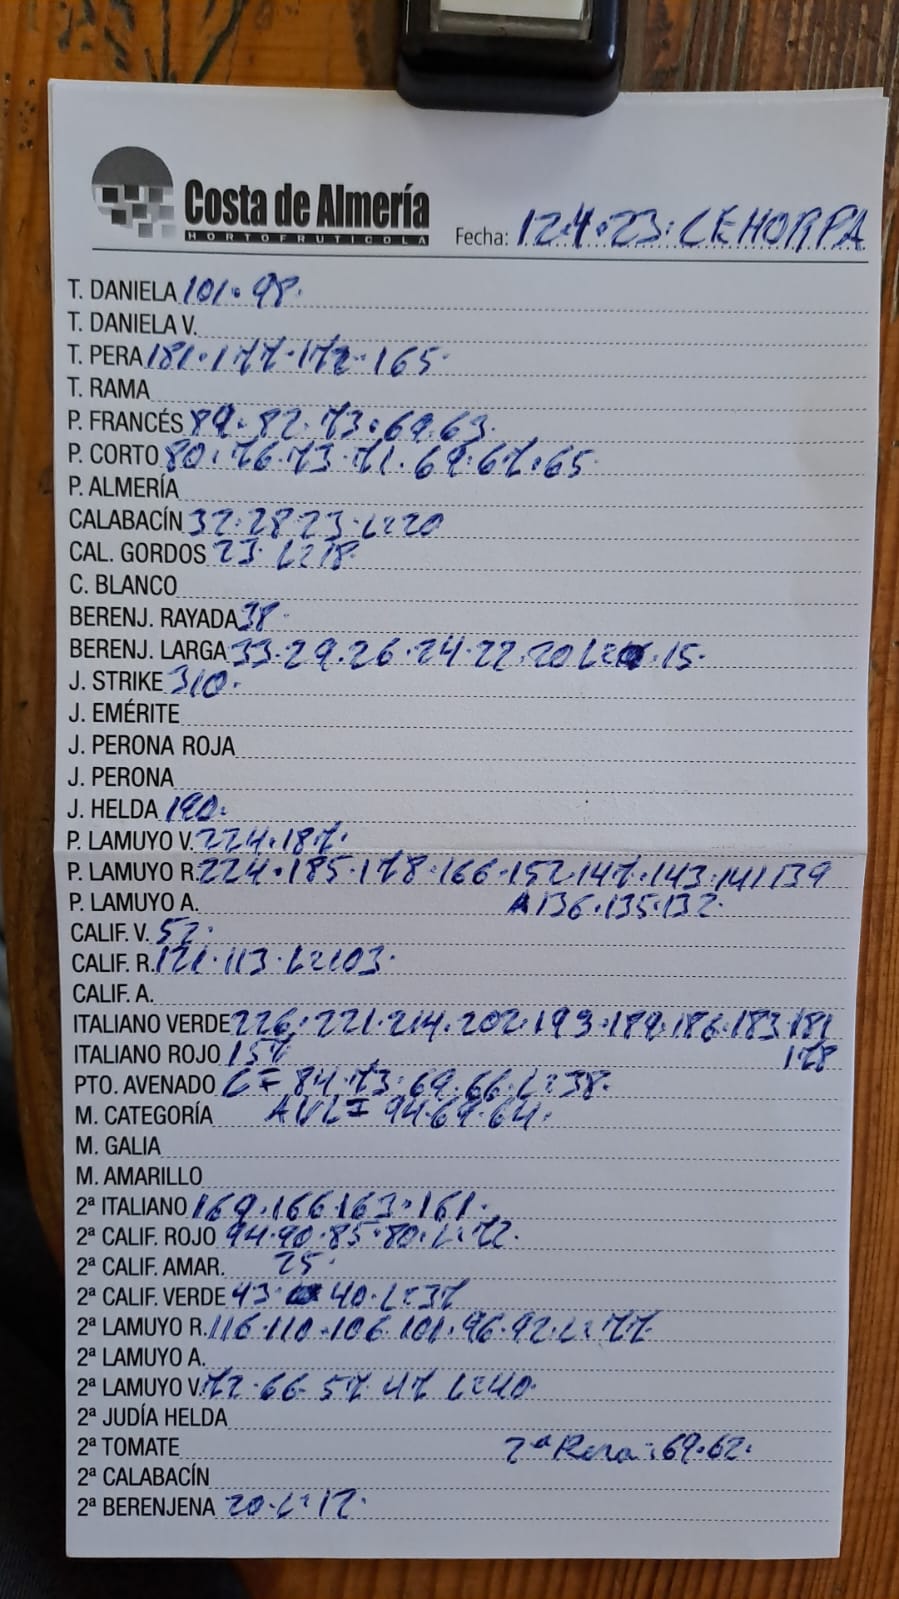 Costa de Almería
HORTOFRUTICOLA
Fecha: 12.4.23. CEHORPA
T. DANIELA 101.98.
T. DANIELA V.
T. PERA 181.177.172.165.
T. RAMA
P. FRANCÉS 89.82.73.69.63.
P. CORTO 80.76.73.71.69.67.65.
P. ALMERÍA
CALABACÍN 32.28.23.L=20
CAL. GORDOS 23. L=18.
C. BLANCO
BERENJ. RAYADA 38.
BERENJ. LARGA 33.29.26.24.22.20 L= .15.
J. STRIKE 310.
J. EMÉRITE
J. PERONA ROJA
J. PERONA
J. HELDA 190.
P. LAMUYO V. 224.187.
P. LAMUYO R. 224.185.178.166.152.147.143.141 139
P. LAMUYO A. A 136.135.132.
CALIF. V. 52.
CALIF. R. 121.113.L=103.
CALIF. A.
ITALIANO VERDE 226.221.214.202.193.189.186.183 181
ITALIANO ROJO 157 178
PTO. AVENADO C= 84.73.69.66.L=38.
M. CATEGORÍA AVL= 94.69.64.
M. GALIA
M. AMARILLO
2ª ITALIANO 169.166 163.161.
2ª CALIF. ROJO 94.90.85.80.L=72.
2ª CALIF. AMAR. 25.
2ª CALIF. VERDE 43. 40.L=37
2ª LAMUYO R. 116.110.106.101.96.92.L=77.
2ª LAMUYO A.
2ª LAMUYO V. 72.66.57.47 L=40.
2ª JUDÍA HELDA
2ª TOMATE 2ª Pera: 69.62.
2ª CALABACÍN
2ª BERENJENA 20.L=12.